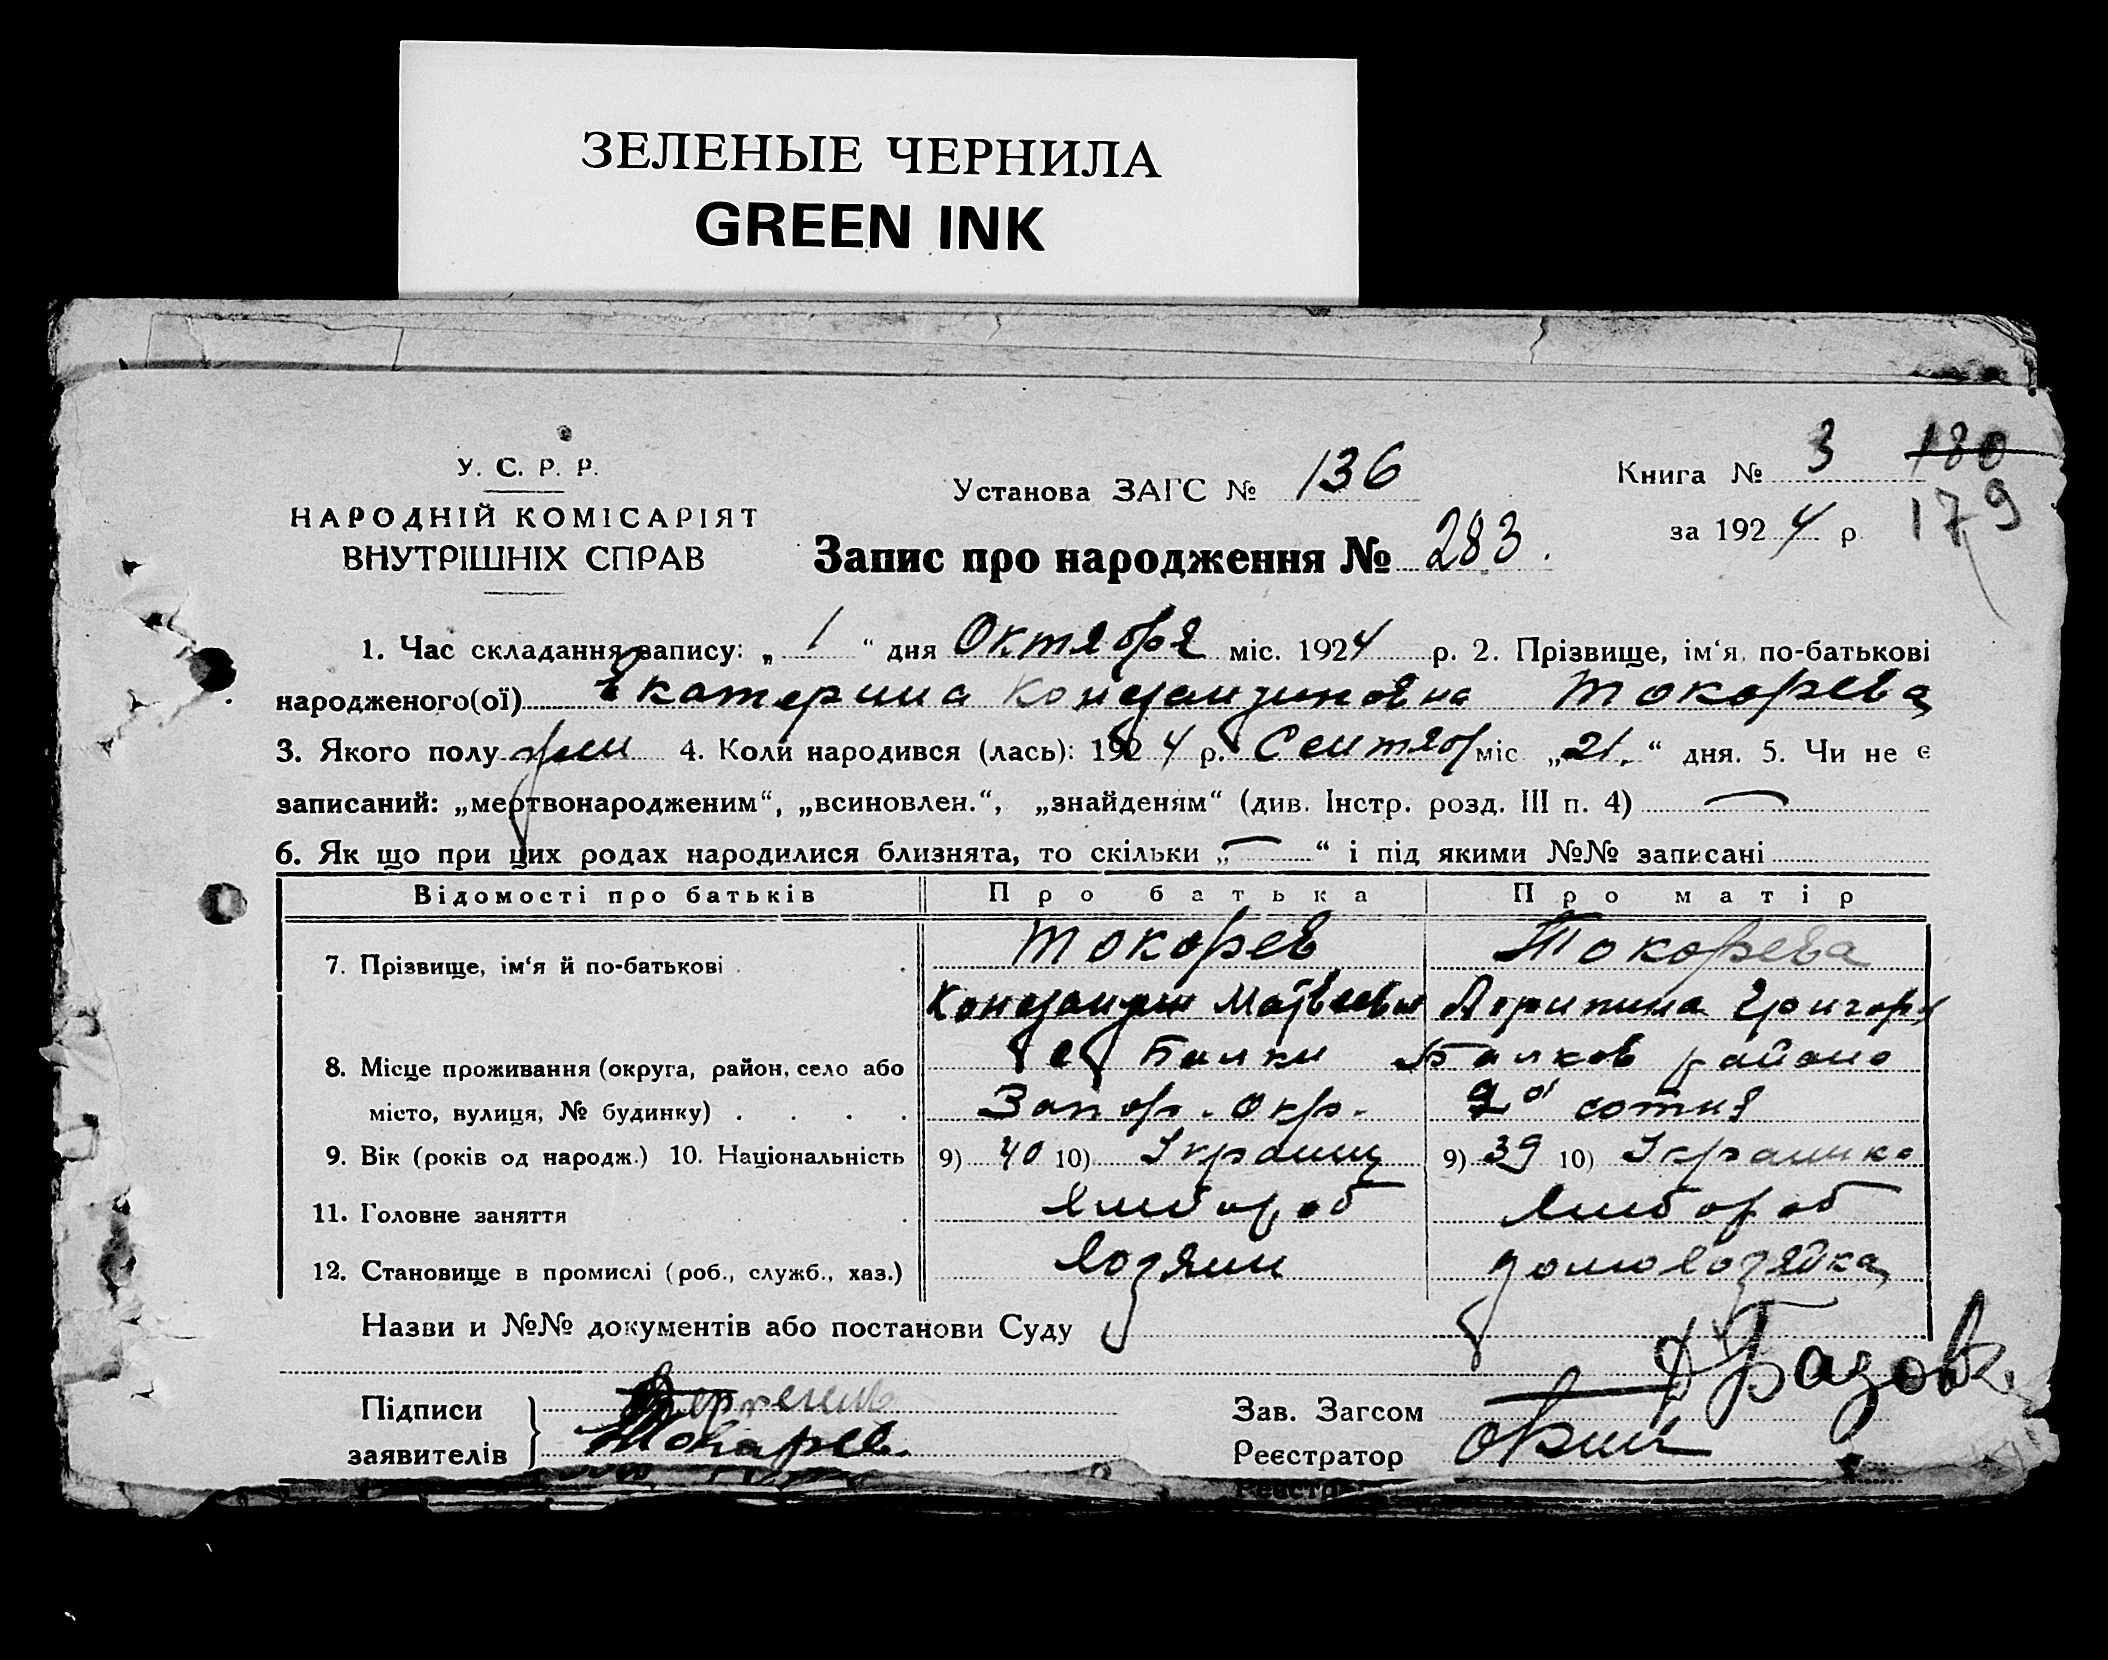 ЗЕЛЕНЫЕ ЧЕРНИЛА
GREEN INK
У. С. Р. Р.
НАРОДНІЙ КОМІСАРІЯТ
ВНУТРІШНІХ СПРАВ
Установа ЗАГС № 136
Книга № 3 180
за 1924 р. 179
Запис про народження № 283.
1. Час складання запису: „ 1 “ дня Октября міс. 1924 р. 2. Прізвище, ім‘я, по-батькові
народженого(ої) Екатерина Константиновна Токорева
3. Якого полу жен 4. Коли народився (лась): 1924 р. Сентяб міс „21.“ дня. 5. Чи не є
записаний: „мертвонародженим“, „всиновлен.“, „знайденям“ (див. Інстр. розд. III п. 4) —
6. Як що при цих родах народилися близнята, то скільки „ — “ і під якими №№ записані
Відомості про батьків Про батька Про матір
7. Прізвище, ім‘я й по-батькові Токорев Токорева
Константин Матвеевич Агрипина Григор
8. Місце проживання (округа, район, село або с Балки Балков района
місто, вулиця, № будинку) Запор. Окр. сотня
9. Вік (років од народж.) 10. Національність 9) 40 10) Украинц 9) 39 10) Украинка
11. Головне заняття Хлебороб Хлебороб
12. Становище в промислі (роб., служб., хаз.) Хозяин домохозяйка
Назви и №№ документів або постанови Суду
Підписи
заявителів Токарев
Зав. Загсом
Реєстратор